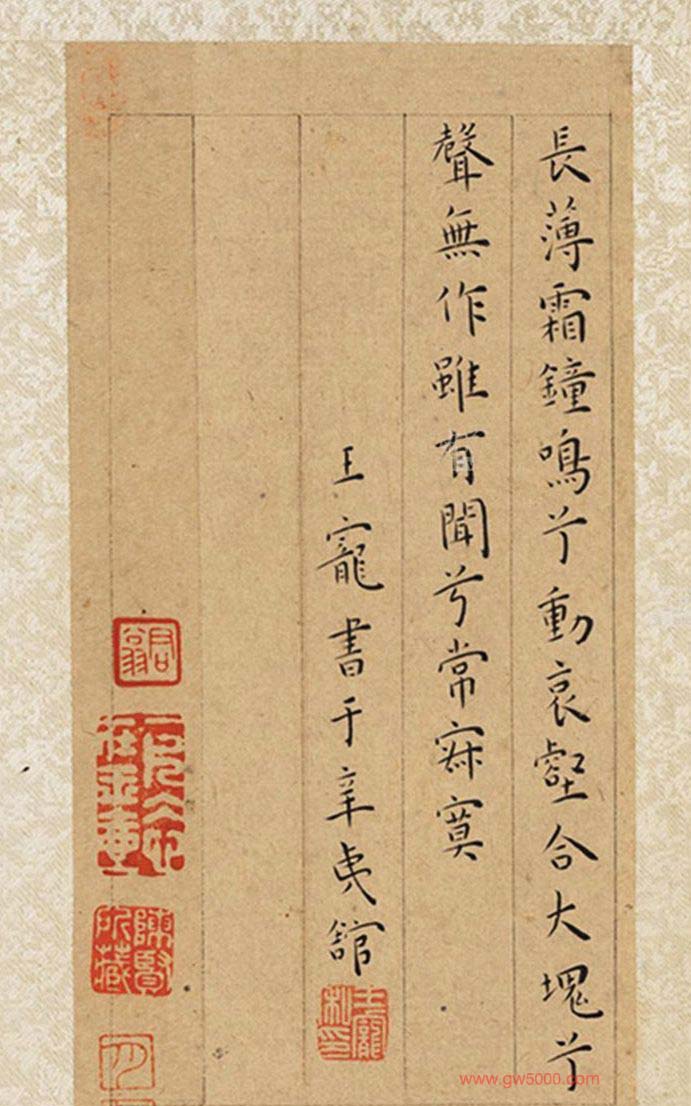 長薄霜鐘鳴兮動哀壑合大塊兮
聲無作雖有聞兮常寂寞
王寵書于辛夷館
王寵私印
www.gw5000.com